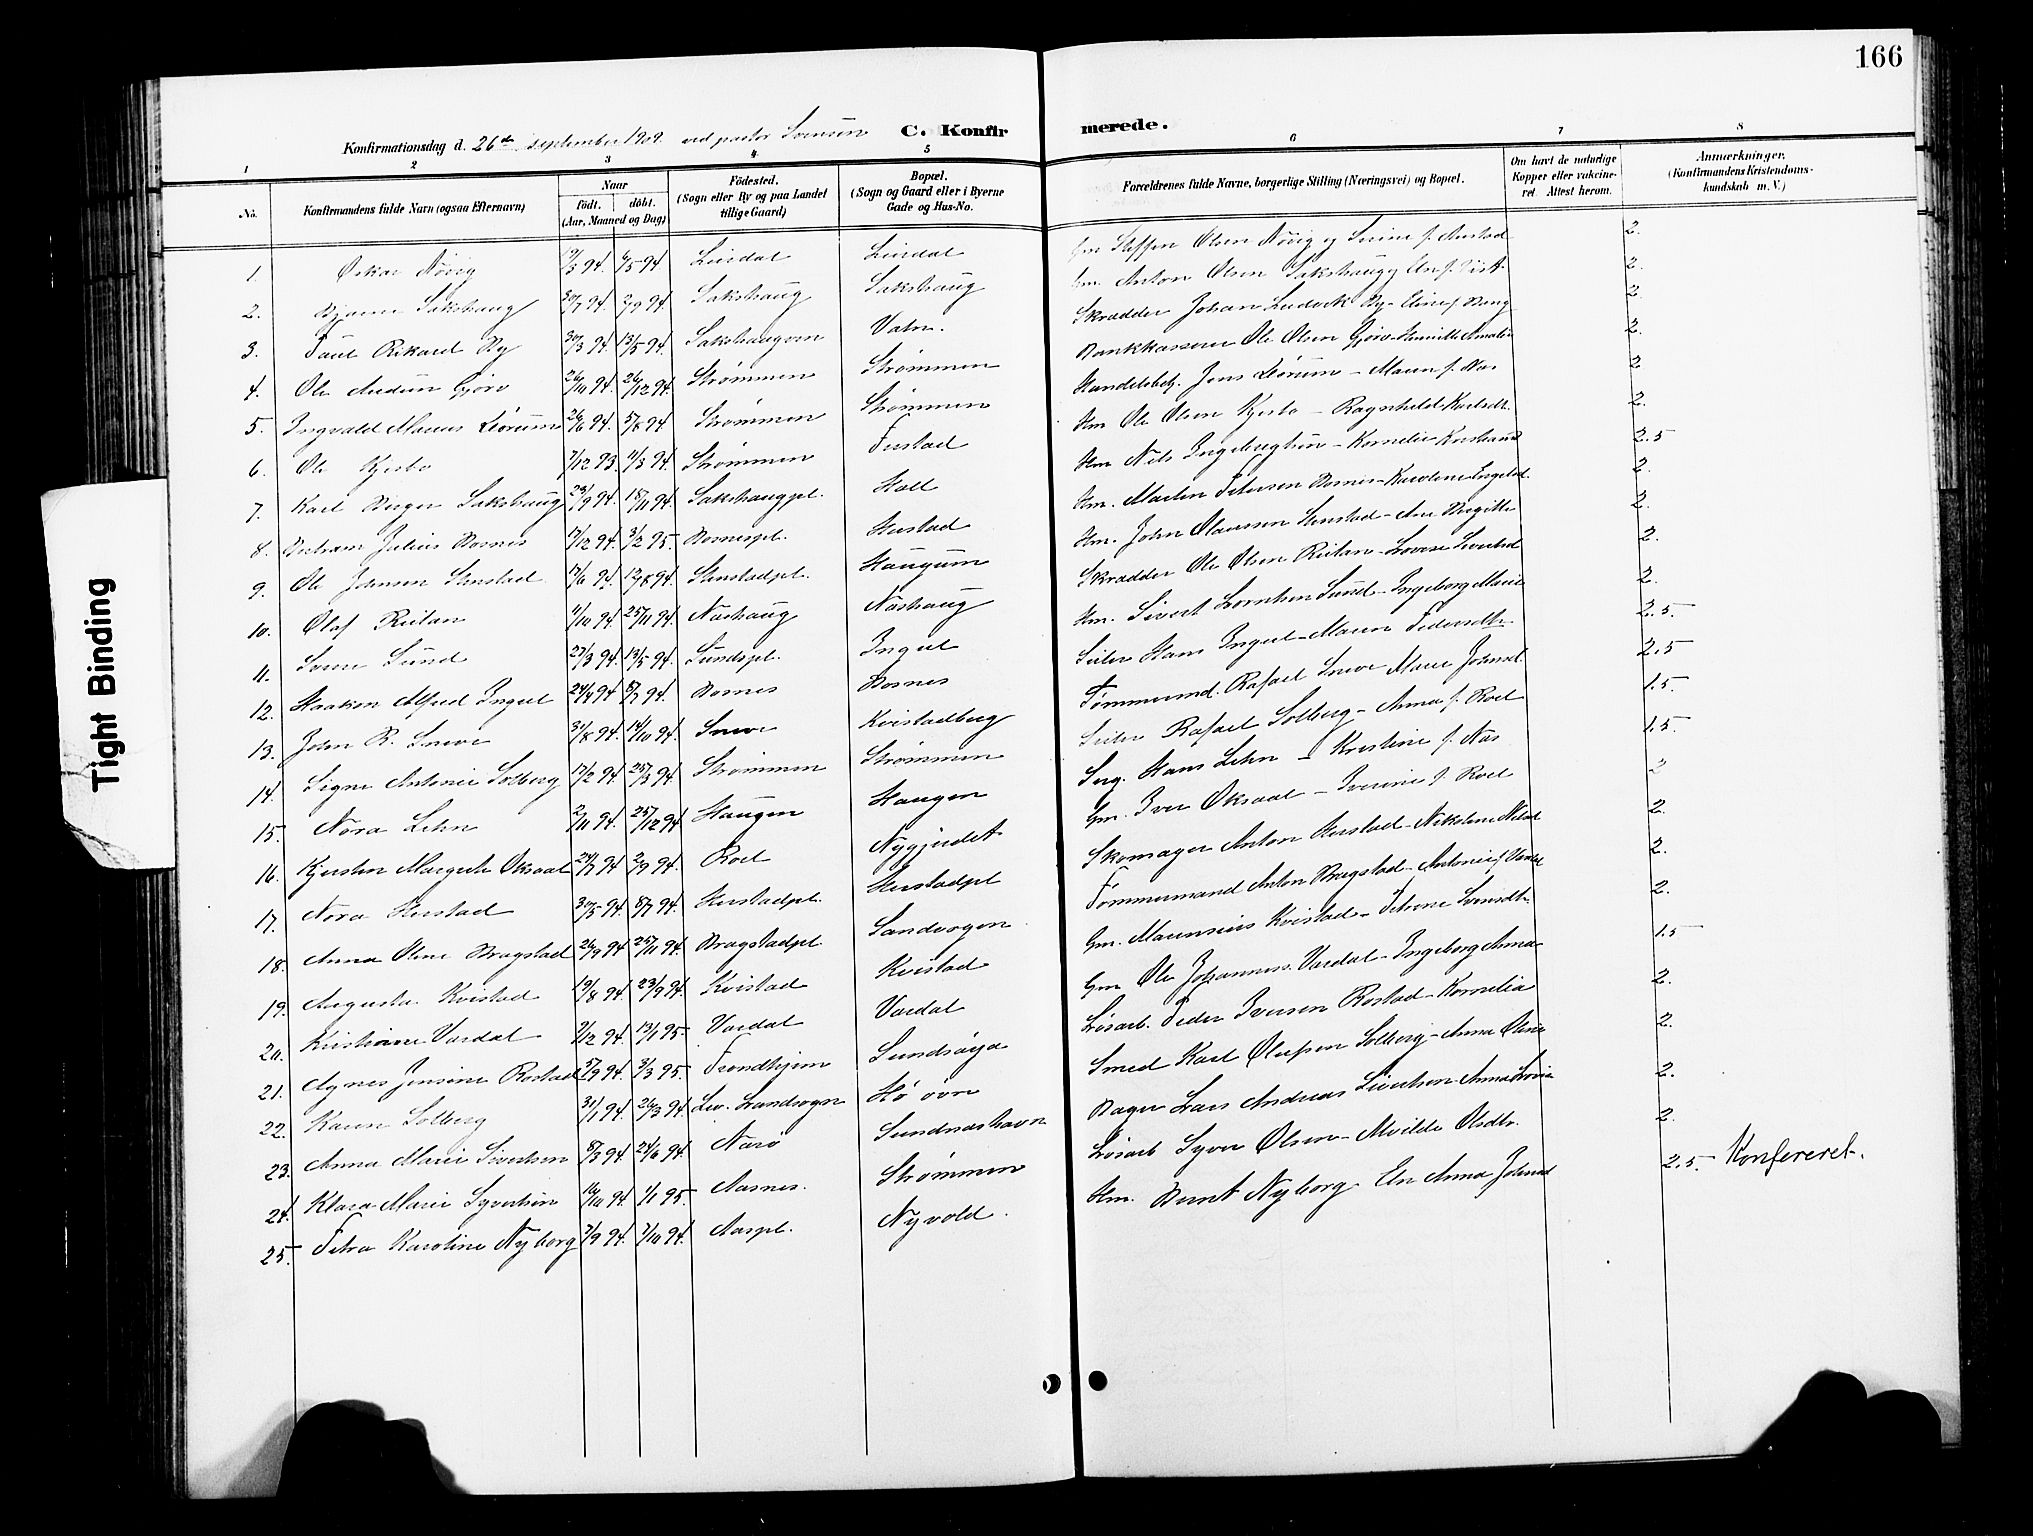 166
Konfirmationsdag d. 26de september 1909 ved pastor Svensen C. Konfir merede.
1 2 3 4 5 6 7 8
No. Konfirmandens fulde Navn (ogsaa Efternavn) Naar født. døbt. (Aar, Maaned og Dag) Fødested. (Sogn eller By og paa Landet tillige Gaard) Bopæl. (Sogn og Gaard eller i Byerne Gade og Hus-No. Forældrenes fulde Navne, borgerlige Stilling (Næringsvei) og Bopæl. Om havt de naturlige Kopper eller vaccineret. Attest herom. Anmærkninger. (Konfirmandens Kristendomskundskab m. V.)
1. Oskar 19/3 94. 6/5 94 Lirdal Lirdal Gm Steffen Olsen 2.
2. Bjarne Sakshaug 30/7 94. 2/9 94 Sakshaug Sakshaug Gm. Anton Olsen Sakshaug 2.
3. Paul Rikard By 30/3 94. 13/5 94. Sakshaugvn Valn. Skrædder Johan Ludvik By - Eline f. Bang 2.
4. Ole Audun Gjørv 26/10 94. 26/12 94. Strømmen Strømmen Bankkasserer Ole Olsen Gjørv 2.
5. Ingvald Marius Leorum 26/6 94. 5/8 94 Strømmen Strømmen Handelsbetj. Jens Leorum - Maren f. Nas 2
6. Ole Kjerbo 7/12 93. 11/3 94. Strømmen Hm Ole Olsen Kjerbo - Ragnhild Karlsdtr. 2.
7. Karl Birger Sakshaug 23/9 94. 18/11 94. Sakshaugpl. Hall Hm Nils Ingebrigtsen - Kornelie 2.5
8. Julius Bosnes 17/12 94. 3/2 95. Bosnespl. Herstad Hm. Martin Petersen Bosnes - Karoline 2.
9. Ole Johnsen Stenstad 17/6 94. 12/8 94. Stenstadpl. Haugum Hm. John Olaussen Stenstad - Ane Birgitte 2.
10. Olaf Reitan 11/10 94. 25/11 94. Nashaug Nashaug Skrædder Ole Olsen Reitan - Lovise Sivertsd 2.
11. Sverre Sund 27/3 94. 13/5 94. Sundspl. Ingul Hm. Sivert Lorntsen Sund - Ingeborg Marie 2.
12. Haakon Alfred Ingul 24/4 94 8/7 94. Bosnes Bosnes Hans Ingul - Maren Pedersdtr. 2.5
13. John R. Sneve 31/8 94. 14/10 94. Sneve Kvistadberg Tømmermd. Rafael Sneve Maren Johnsd. 2.5
14. Signe Antonie Solberg 17/2 94. 25/3 94 Strømmen Strømmen Rafael Solberg - Anna f. Roel 1.5.
15. Nora Lehn 2/11 94. 25/12 94 Haugen Haugen Serg. Hans Lehn - Kristine f. Nas 1.5.
16. Kjersten Margrete Oksaal 24/7 94 2/9 94. Roel Nygjerdet Gm. Iver Oksaal - Iverine f. Roel 2
17. Nora Herstad 30/5 94. 8/7 94. Herstadpl. Herstadpl Skomager Anton Herstad - Nikoline 2.
18. Anna Oline Bragstad 26/9 94 25/11 94. Bragstadpl Sandvogen Tømmermand Anton Bragstad - Antonie f. Vardal 2.
19. Augusta Kvistad 19/8 94. 23/9 94. Kvistad Kvistad Gm. Maurisius Kvistad - Petrine Svensdtr. 2.
20. Kristiane Vardal 2/12 94. 13/1 95. Vardal Vardal Gm Ole Johannes. Vardal - Ingeborg Anna 1.5
21. Agnes Jensine Rostad 5/9 94. 3/3 95. Trondhjem Sundsøya Løsarb. Peder Iversen Rostad - Kornelia 2.
22. Karen Solberg 31/1 94. 26/3 94. Lev. Landsogn Hø øvre Smed Karl Olufsen Solberg - Anna Oline 2.
23. Anna Marie Sivertsen 8/3 94. 24/6 94. Narø Sundnashavn Bager Lars Andreas Sivertsen - Anna Lovise 2.
24. Klara Marie Syversen 16/10 94. 1/1 95. Aasnes. Strømmen Løsarb Syver Olsen - Alvilde Olsdtr. 2.
25. Petra Karoline Nyborg 7/9 94. 7/10 94. Aaspl. Nyvold. Hm. Bernt Nyborg - Eln Anna Johnsd 2.5. Konfereret.
Tight Binding